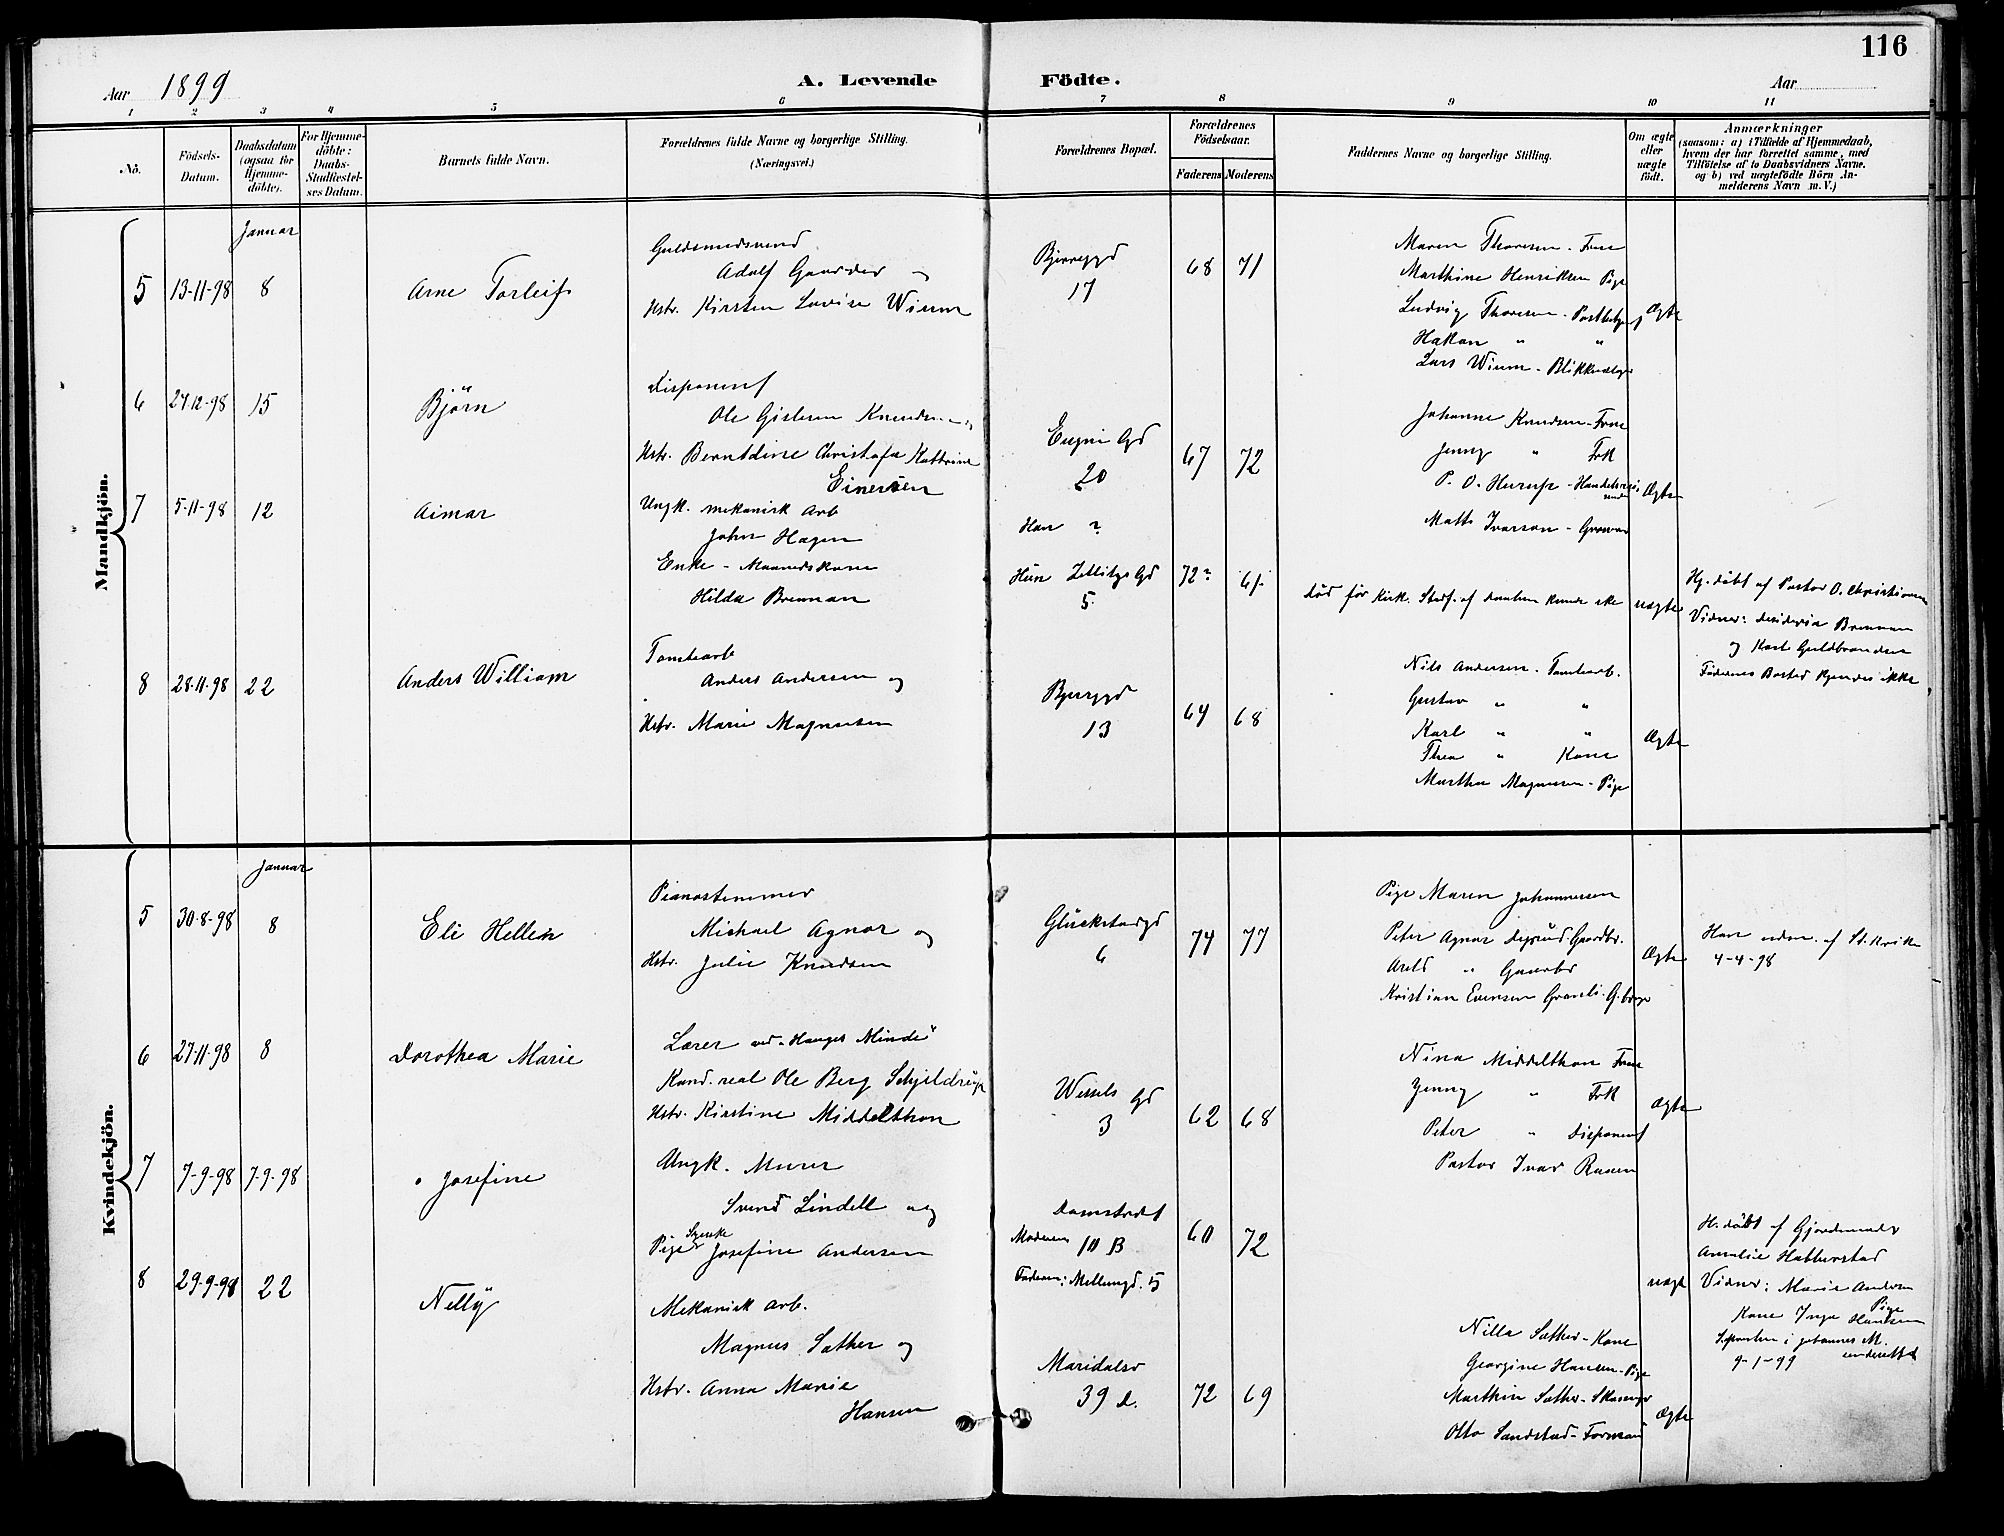 116
Aar 1899
A. Levende Födte.
Aar
1 2 3 4 5 6 7 8 9 10 11
No.
Födsels-Datum.
Daabsdatum (ogsaa for Hjemme-döbte).
For Hjemme-döbte: Daabs-Stadfæstel-ses Datum.
Barnets fulde Navn.
Forældrenes fulde Navne og borgerlige Stilling.
(Næringsvei.)
Forældrenes Bopæl.
Forældrenes Födselsaar.
Faderens Moderens
Faddernes Navne og borgerlige Stilling.
Om ægte eller uægte födt.
Anmærkninger
(saasom: a) i Tilfælde af Hjemmedaab,
hvem der har forrettet samme, med
Tilföielse af to Daabsvidners Navne.
og b) ved uægtefödte Börn An-
melderens Navn m. V.)
Mandkjön.
Januar
5 13-11-98 8 Arne Torleif
Adolf Gaarder og
Hstr. Kirsten Lovise Wium
17
68 71
Maren Thoresen - Frue
Marthine Henriksen Pige
Ludvig Thoresen
Hakon " "
Lars Wium
Ægte
6 27-12-98 15 Björn
Disponent
Ole Gislesen Knudsen
Hstr. Berntdine Christofa Kathrine
Einersen
Eugeni Gd
20
67 72
Johanne Knudsen - Frue
Jenny " Frk
Matts Ivarson
Ægte
7 5-11-98 12 Aimar
Ungk. mekanisk Arb
John Hagen
Enke - Maanedskone
Hilda Brennan
Han ?
Hun Zetlitzs Gd
5.
72?
død før Kirk. Stadf. af daaben kunde ske
uægte
Hj. døbt af Pastor O. Christiansen
Vidner: Desideria Brennan
og Karl Guldbrandsen
Faderens Bosted kjendes ikke
8 28-11-98 22 Anders William
Tomtearb
Anders Andersen og
Hstr. Marie Magnussen
13
64 68
Nils Andersen - Tomtearb.
Gustav " "
Karl " "
Thea " Kone
Martha Magnussen - Pige
Ægte
Kvindekjön.
Januar
5 30-8-98 8 Eli Hellen
Pianostemmer
Michael Agnar og
Hstr. Julie Knudsen
6
74 77
Pige Maren Johannesen
Peter Agnar
Kristian Evensen
Ægte
Han udm. af St. Kirke
4-4-98
6 27-11-98 8 Dorothea Marie
Lærer ved "Hauges Minde"
Kand. real Ole Berg Schjeldrup
Hstr. Kirstine Middelthon
Wessels Gd
3
62 68
Nina Middelthon Frue
Jenny " Frk
Peter " Disponent
Pastor Ivar
Ægte
7 7-9-98 7-9-98 Josefine
Ungk. Murer
Svend Lindell og
Svenske
Pige Josefine Andersen
Damstredet
Moderen 10 B
Faderen: Møllergd. 5
60 72
uægte
H. døbt af Gjordemoder
Amalie Hatterstad
Vidner: Marie Andersen
Pige
Kone Inga Hansen
9-1-99
8 29-9-98 22 Nelly
Mekanisk Arb.
Magnus Sæther og
Hstr. Anna Marie
Hansen
Maridalsv
39 d.
72 69
Nilla Sæther - Kone
Georgine Hansen - Pige
Marthin Sæther
Otto Sandstad - Formand
Ægte